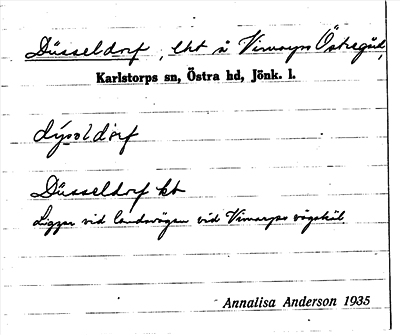 Düsseldorf, lht å Virserps Östregård,
Karlstorps sn, Östra hd, Jönk. l.
dýsəldòrf
Düsseldorf kt
Ligger vid landsvägen vid vägskäl
Annalisa Anderson 1935